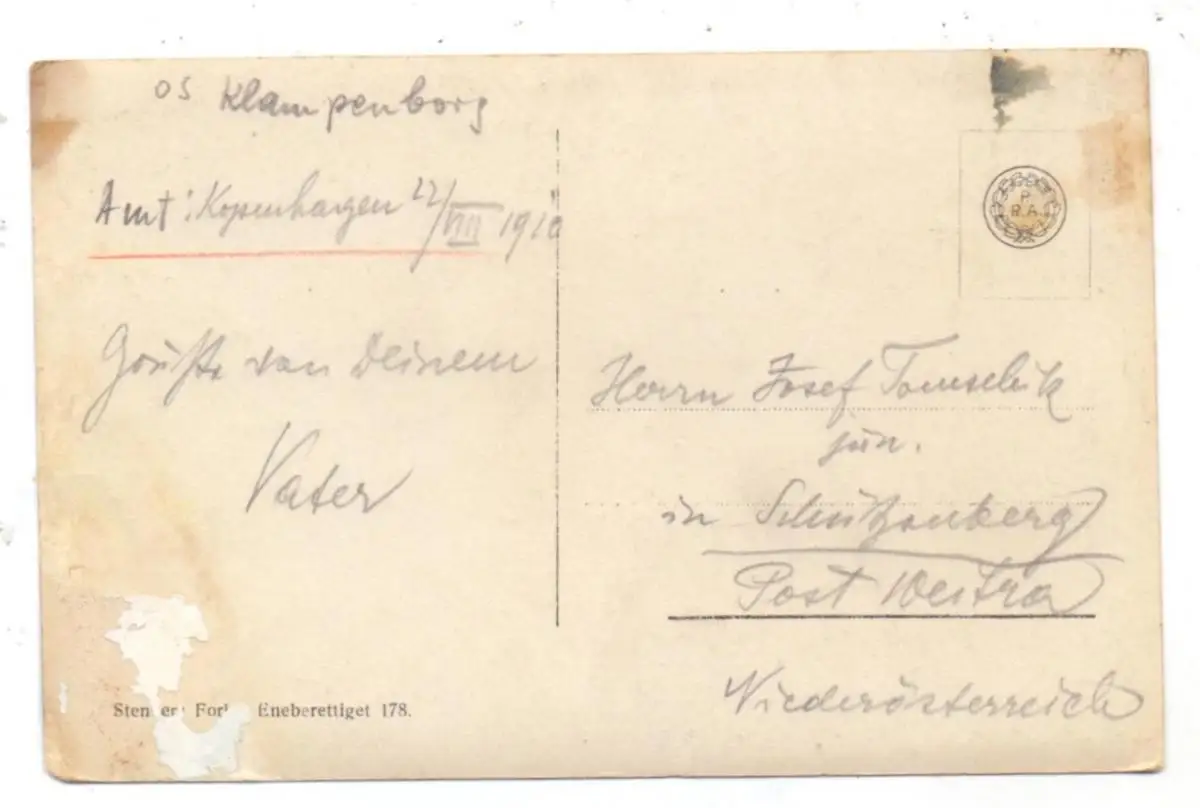 OS Klampenborg
Amt: Kopenhagen 22/VIII 1910
Grüße von Deinem
Vater
R
R.A.
Herrn Josef Tomschik
jun.
in Schützenberg
Post Weitra
Niederösterreich
Eneberettiget 178.